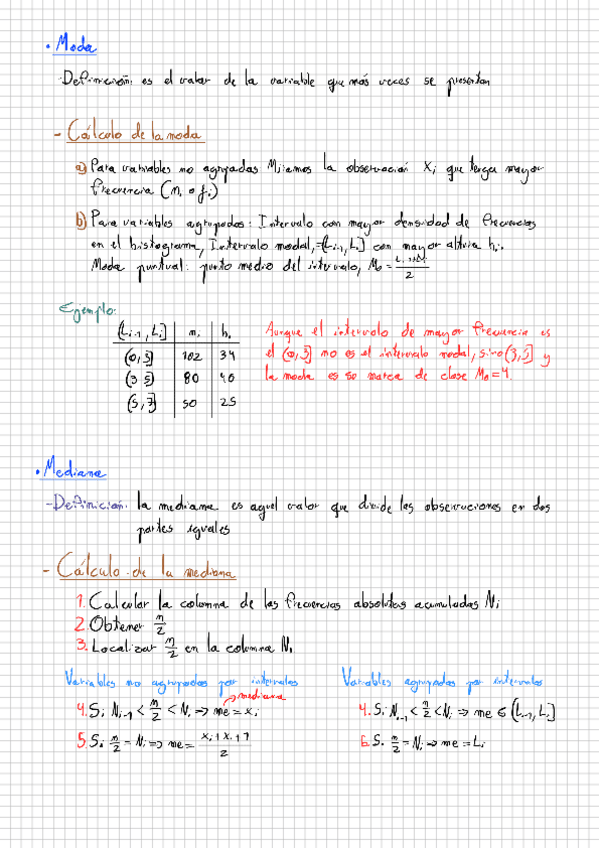 • Moda
-Definición: es el valor de la variable que más veces se presentan
- Cálculo de la moda
a) Para variables no agrupadas Miramos la observación xi que tenga mayor
frecuencia (ni o fi)
b) Para variables agrupadas: Intervalo con mayor densidad de frecuencias
en el histograma, Intervalo modal, =(Li-1, Li] con mayor altura hi.
Moda puntual: punto medio del intervalo, Mo =
2
Ejemplo:
(Li-1, Li] ni hi
(0,3] 102 34
(3 5] 80 40
(5,7] 50 25
Aunque el intervalo de mayor frecuencia es
el (0,3] no es el intervalo modal, sino (3,5] y
la moda es su marca de clase Mo=4.
• Mediana
-Definición: la mediana es aquel valor que divide las observaciones en dos
partes iguales
- Cálculo de la mediana
1. Calcular la columna de las frecuencias absolutas acumuladas Ni
2. Obtener n/2
3. Localizar n/2 en la columna Ni
Variables no agrupadas por intervalos
→ mediana
4. Si Ni-1 < n/2 < Ni => me = xi
5. Si n/2 = Ni => me = xi + xi+1 / 2
Variables agrupadas por intervalos
4. Si Ni-1 < n/2 < Ni => me ∈ (Li-1, Li]
6. Si n/2 = Ni => me = Li